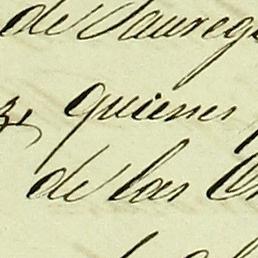 de Saureg
z, quienes
de las